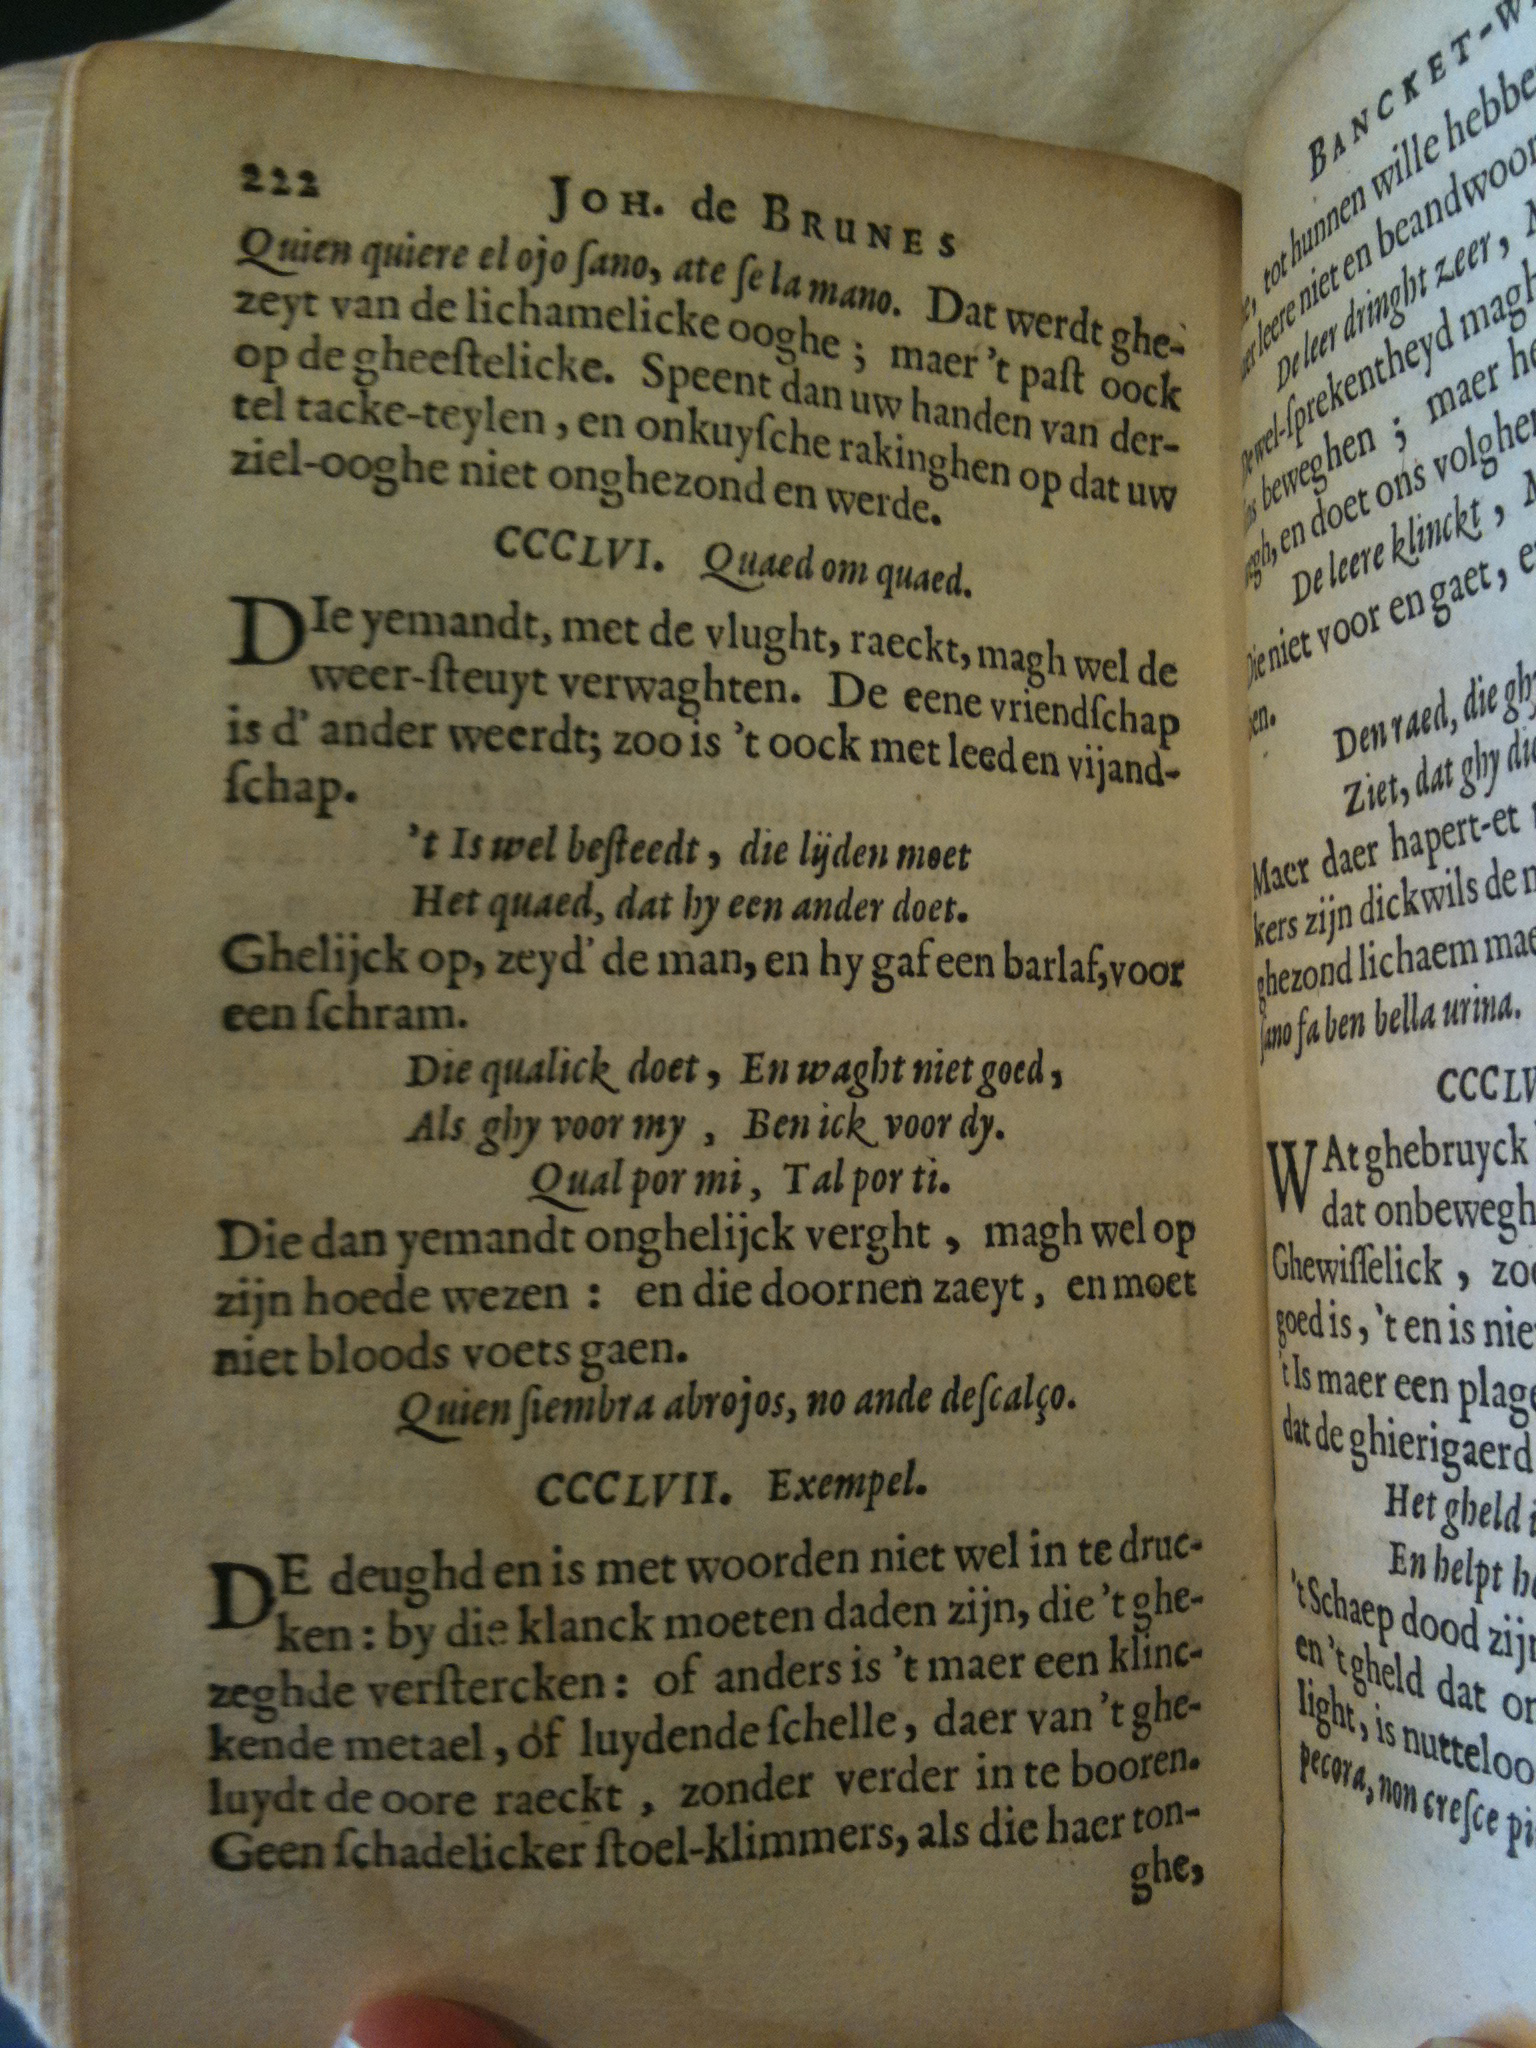 222 JOH. de BRUNES
Quien quiere el ojo ſano, ate ſe la mano. Dat werdt ghe-
zeyt van de lichamelicke ooghe; maer 't paſt oock
op de gheeſtelicke. Speent dan uw handen van der-
tel tacke-teylen, en onkuyſche rakinghen op dat uw
ziel-ooghe niet onghezond en werde.
CCCLVI. Quaed om quaed.
DIe yemandt, met de vlught, raeckt, magh wel de
weer-ſteuyt verwaghten. De eene vriendſchap
is d' ander weerdt; zoo is 't oock met leed en vijand-
ſchap.
't Is wel beſteedt, die lijden moet
Het quaed, dat hy een ander doet.
Ghelijck op, zeyd' de man, en hy gaf een barlaf, voor
een ſchram.
Die qualick doet, En waght niet goed,
Als ghy voor my, Ben ick voor dy.
Qual por mi, Tal por ti.
Die dan yemandt onghelijck verght, magh wel op
zijn hoede wezen: en die doornen zaeyt, en moet
niet bloods voets gaen.
Quien ſiembra abrojos, no ande deſcalço.
CCCLVII. Exempel.
DE deughd en is met woorden niet wel in te druc-
ken: by die klanck moeten daden zijn, die 't ghe-
zeghde verſtercken: of anders is 't maer een klinc-
kende metael, of luydende ſchelle, daer van 't ghe-
luydt de oore raeckt, zonder verder in te booren.
Geen ſchadelicker ſtoel-klimmers, als die haer ton-
ghe,
BANCKET-W
tot hunnen wille hebbe
leere niet en beandwoor
De leer dringht zeer,
wel-ſprekentheyd magh
beweghen; maer he
en doet ons volghe
De leere klinckt,
Die niet voor en gaet, e
Den raed, die gh
Ziet, dat ghy die
Maer daer hapert-et
kers zijn dickwils de
ghezond lichaem mae
ſano fa ben bella urina.
CCCLV
WAt ghebruyck
dat onbewegh
Ghewiſſelick, zoo
goed is, 't en is nie
't Is maer een plage
dat de ghierigaerd
Het gheld
En helpt
't Schaep dood zijn
en 't gheld dat
light, is nutteloo
pecora, non creſce